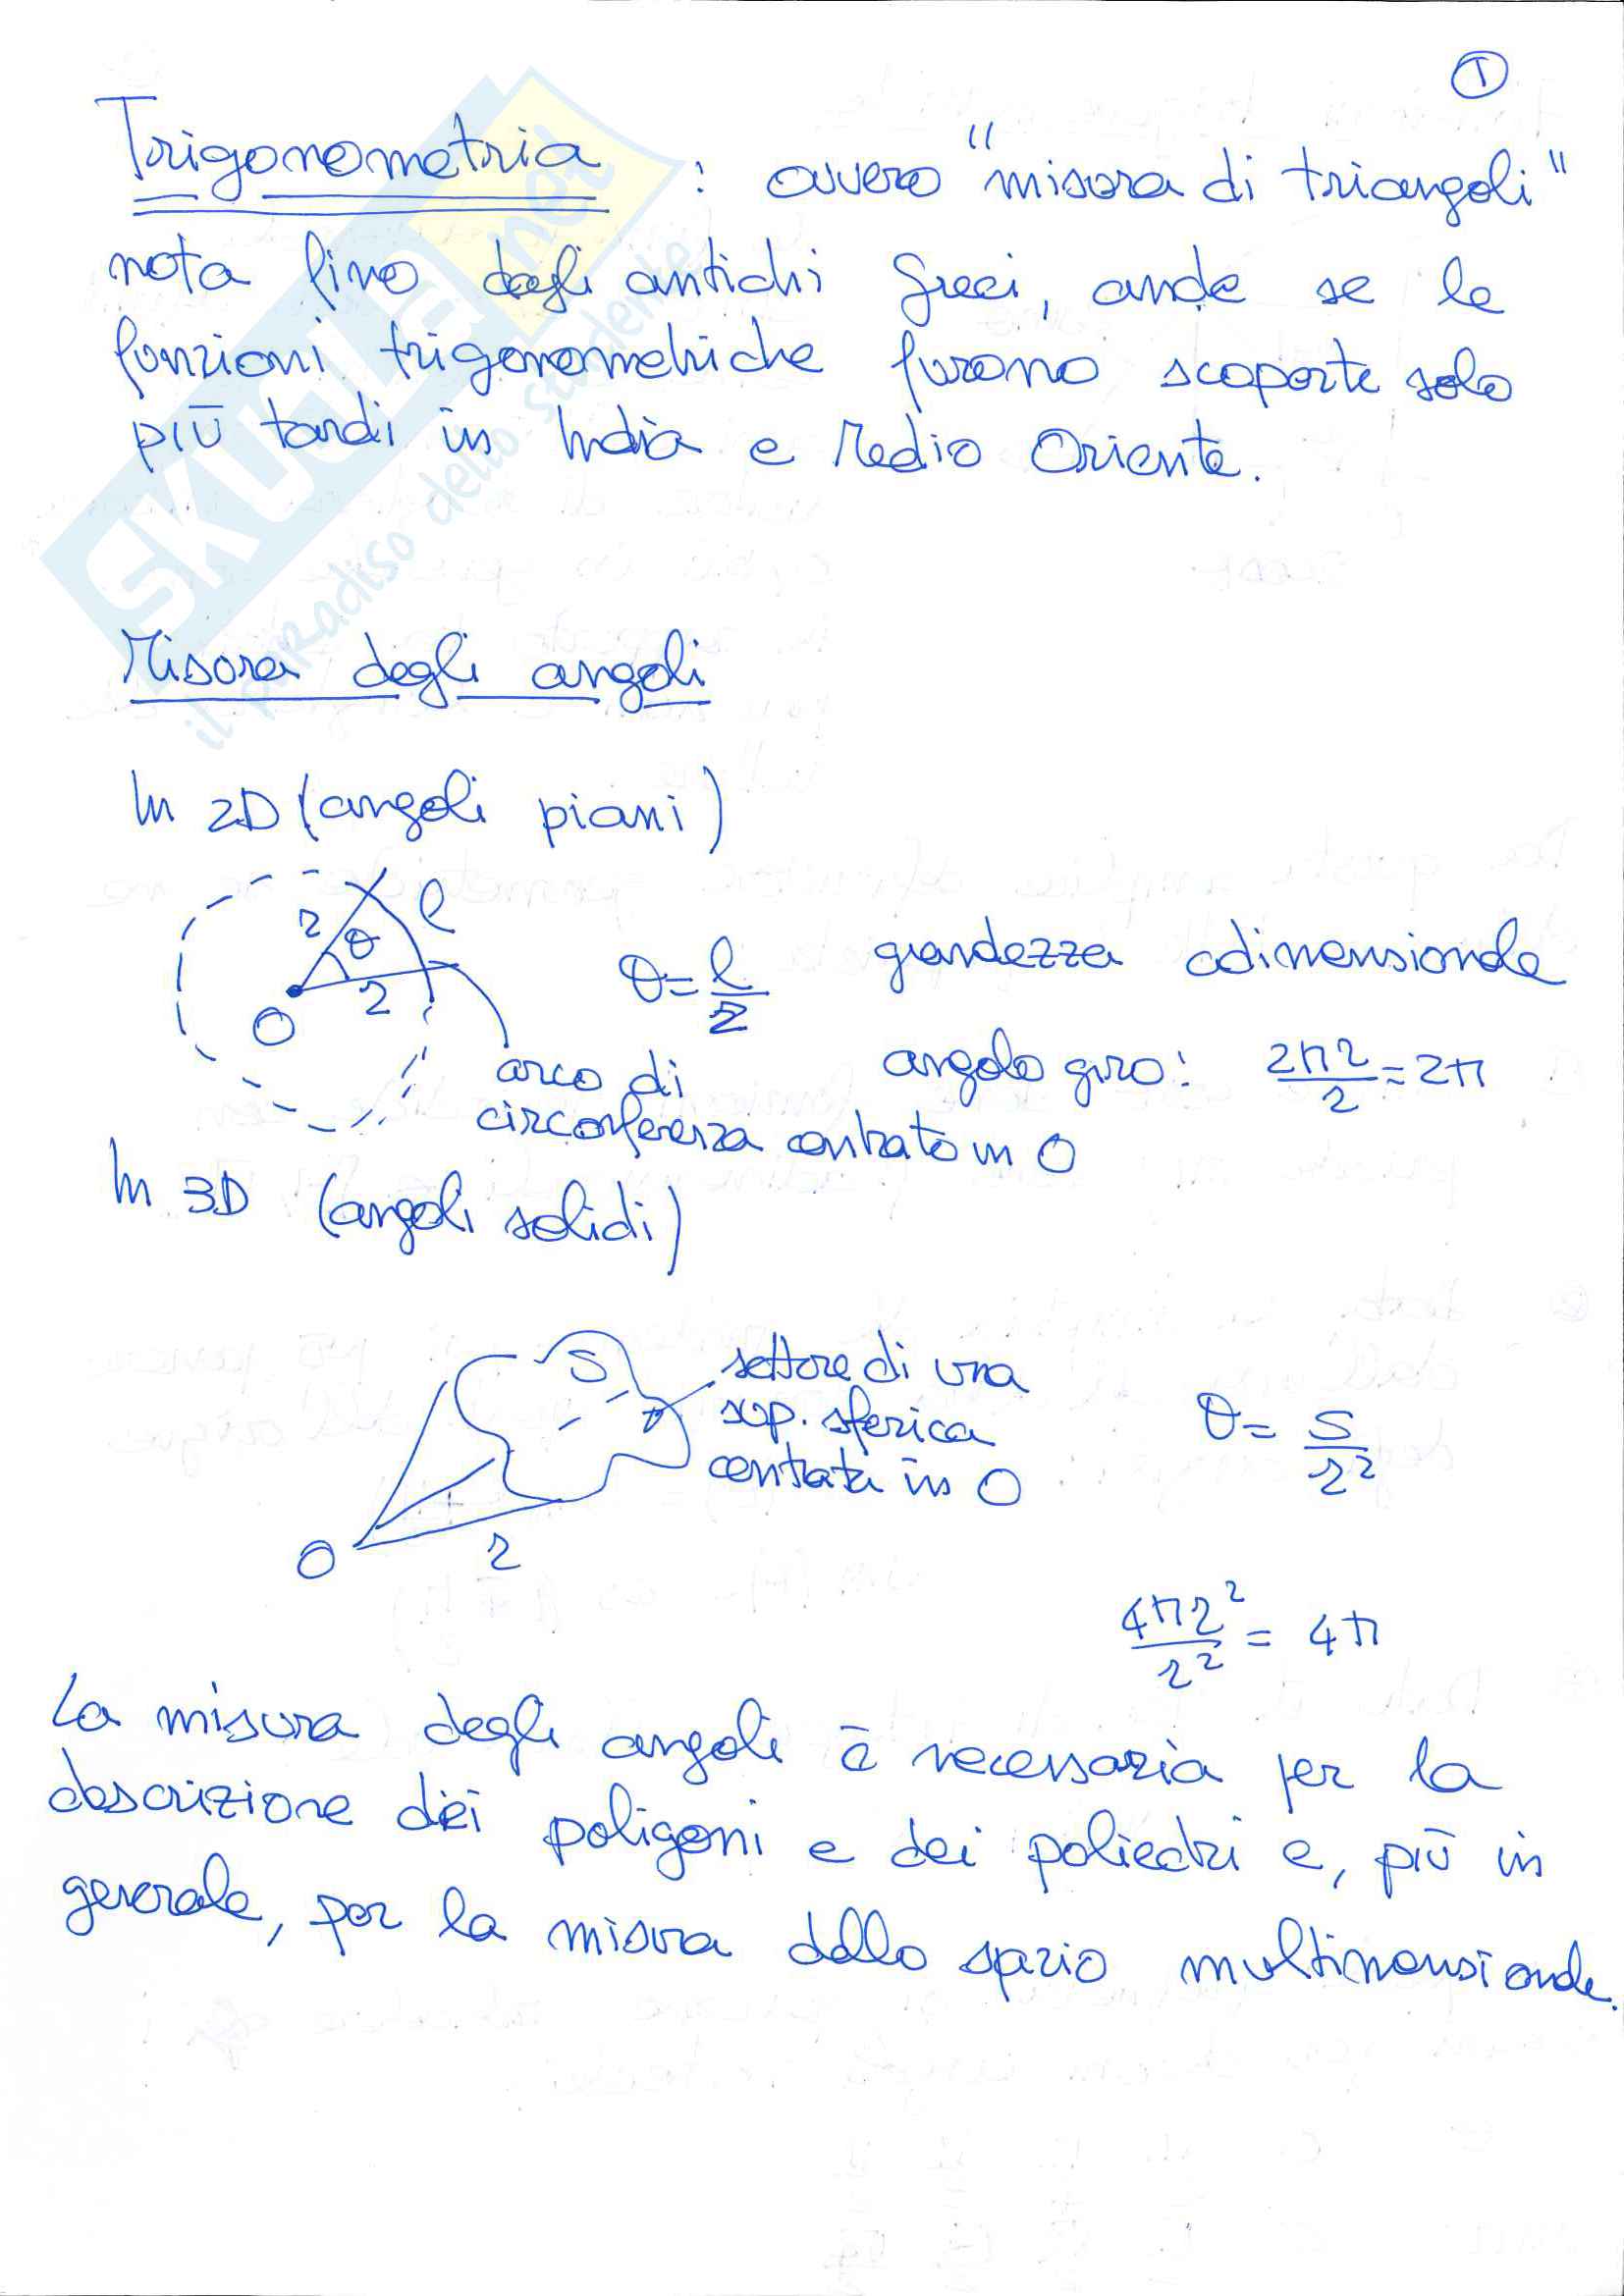 1
Trigonometria : ovvero "misura di triangoli"
nota fino dagli antichi greci, anche se le
funzioni trigonometriche furono scoperte solo
più tardi in India e Medio Oriente.
Misura degli angoli
In 2D (angoli piani)
r θ l
r
O
θ = l/r grandezza adimensionale
angolo giro: 2πr/r = 2π
arco di
circonferenza centrato in O
In 3D (angoli solidi)
S
settore di una
sup. sferica
centrata in O
θ = S/r²
O r
4πr²/r² = 4π
La misura degli angoli è necessaria per la
descrizione dei poligoni e dei poliedri e, più in
generale, per la misura dello spazio multimensionale.
SKUOLA.net
il paradiso dello studente